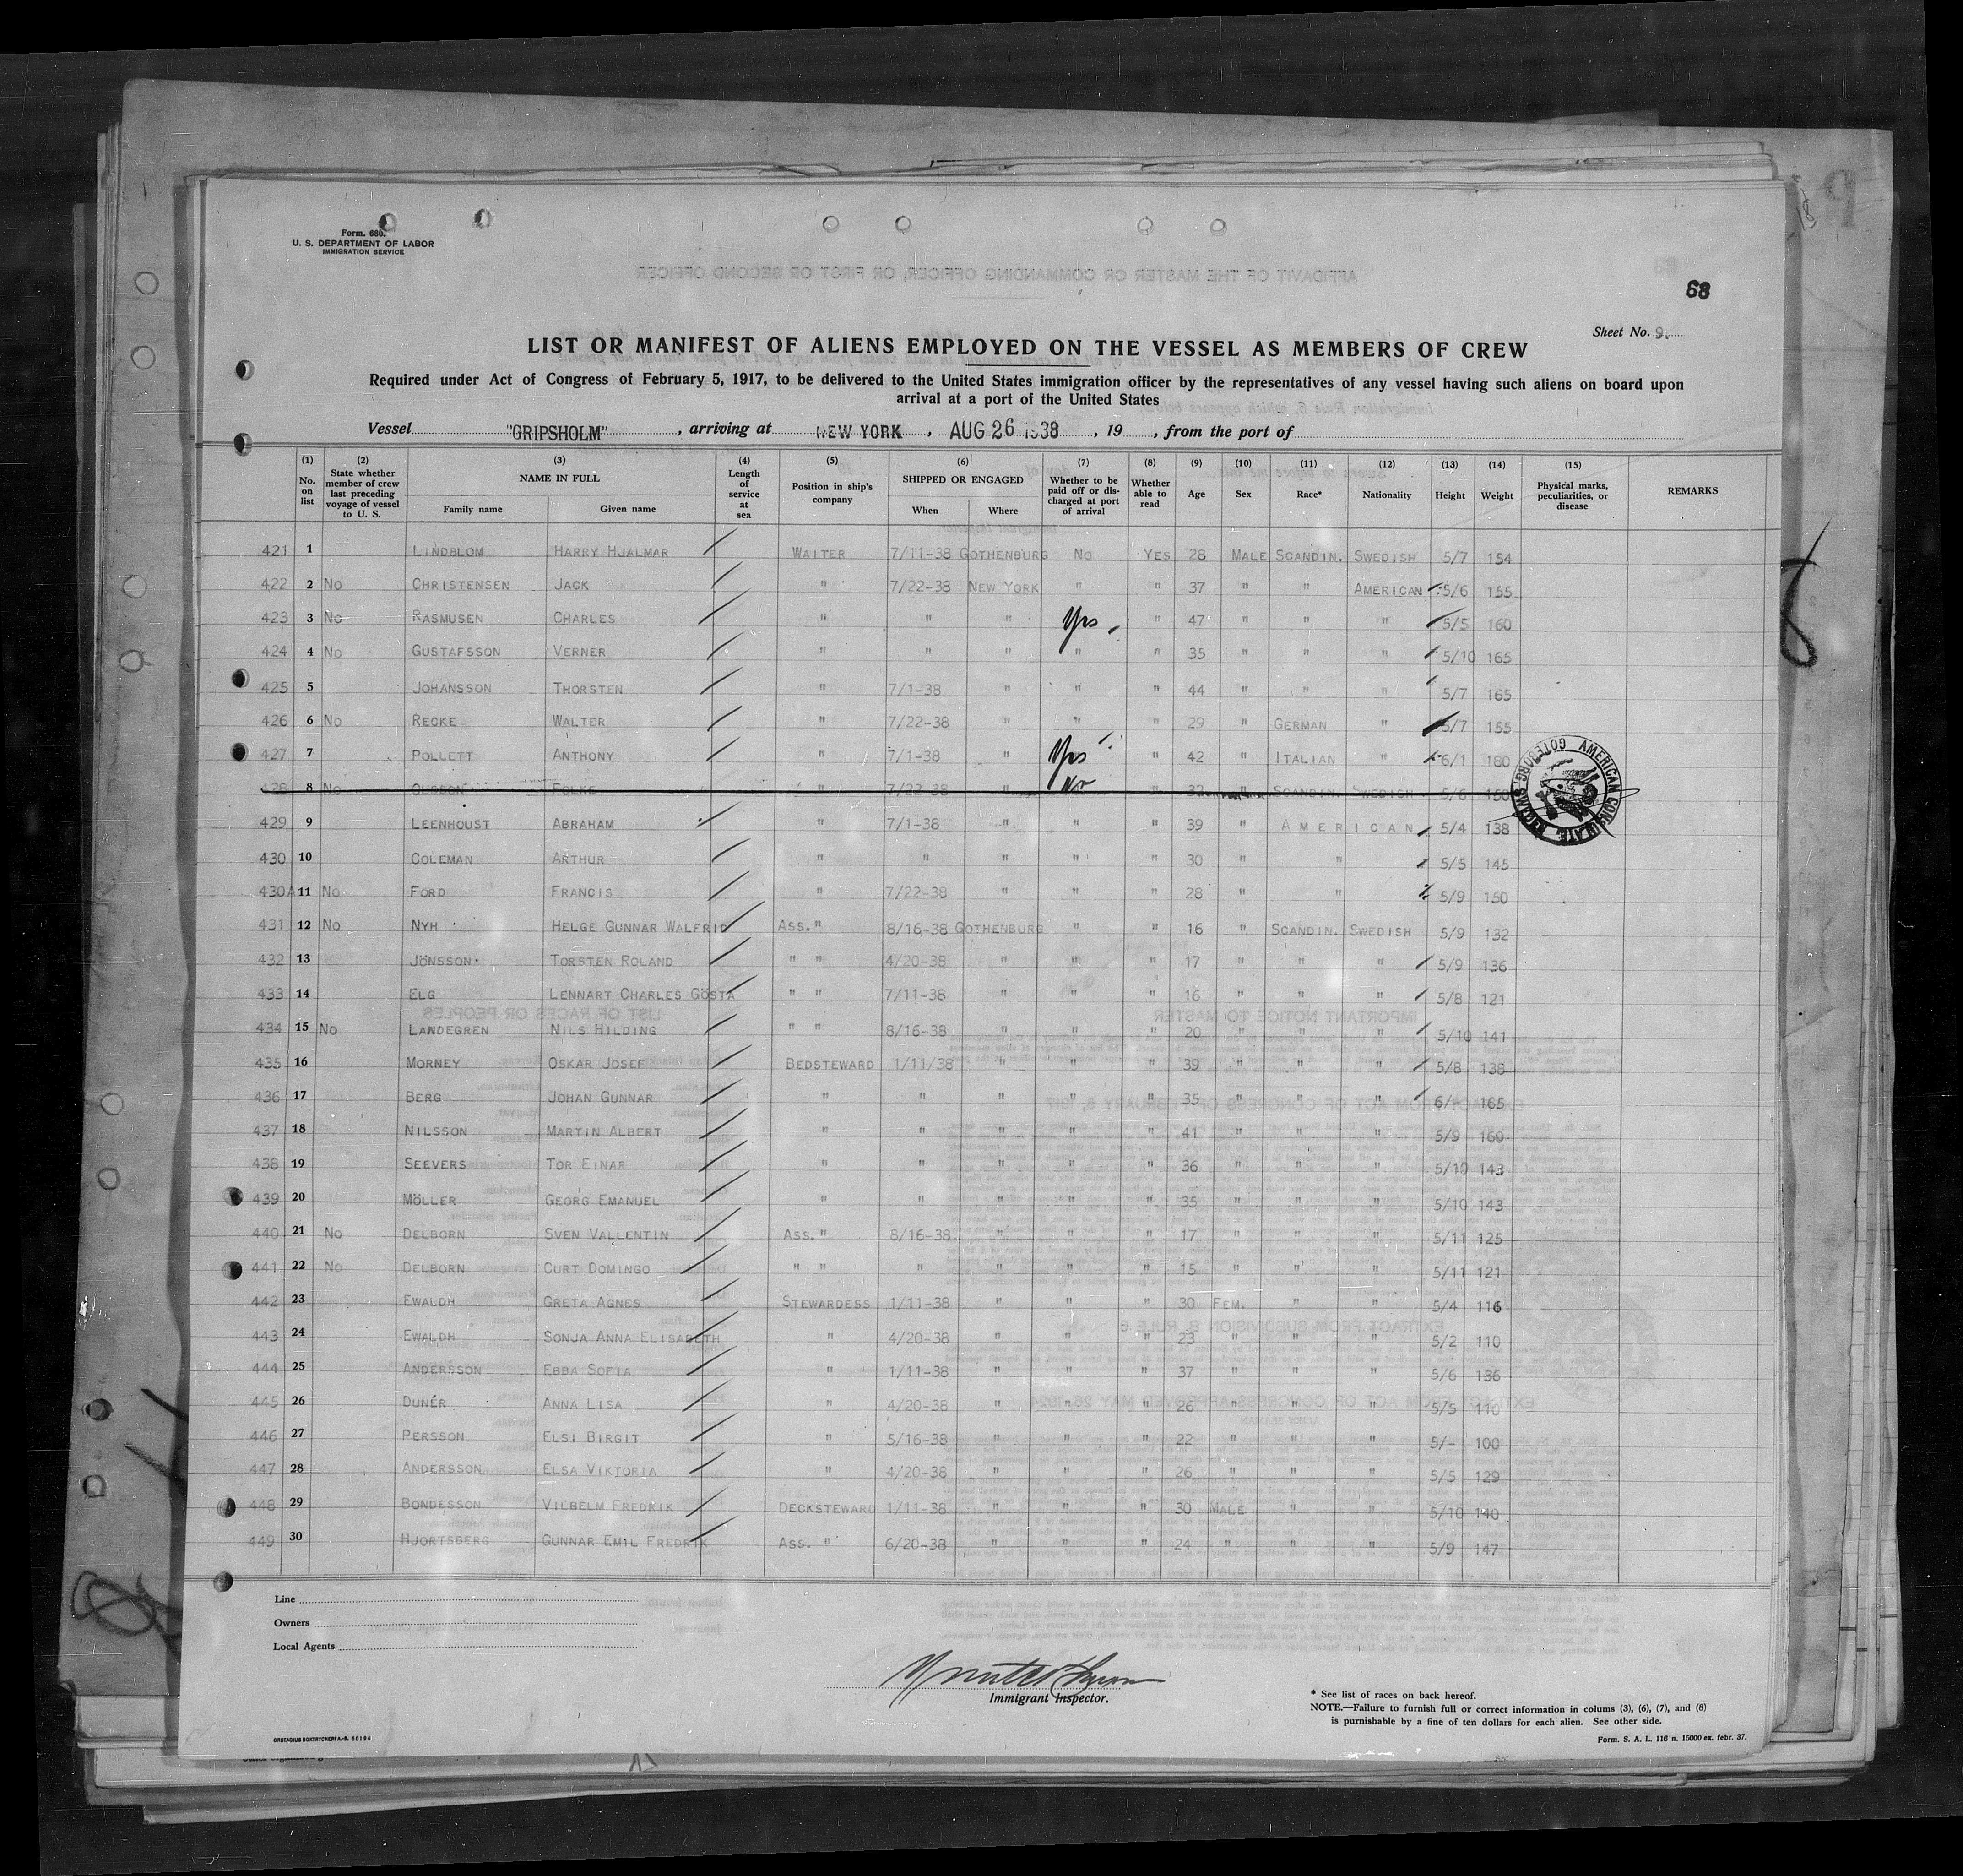 Form. 680.
U. S. DEPARTMENT OF LABOR
IMMIGRATION SERVICE
68
Sheet No. 9.
LIST OR MANIFEST OF ALIENS EMPLOYED ON THE VESSEL AS MEMBERS OF CREW
Required under Act of Congress of February 5, 1917, to be delivered to the United States immigration officer by the representatives of any vessel having such aliens on board upon
arrival at a port of the United States
Vessel "GRIPSHOLM", arriving at NEW YORK, AUG 26 1938, 19, from the port of
(1) No. on list (2) State whether member of crew last preceding voyage of vessel to U. S. (3) NAME IN FULL Family name Given name (4) Length of service at sea (5) Position in ship's company (6) SHIPPED OR ENGAGED When Where (7) Whether to be paid off or discharged at port of arrival (8) Whether able to read (9) Age (10) Sex (11) Race* (12) Nationality (13) Height (14) Weight (15) Physical marks, peculiarities, or disease REMARKS
421 1 LINDBLOM HARRY HJALMAR WAITER 7/11-38 GOTHENBURG NO YES 28 MALE SCANDIN. SWEDISH 5/7 154
422 2 NO CHRISTENSEN JACK " 7/22-38 NEW YORK " " 37 " " AMERICAN 5/6 155
423 3 NO RASMUSEN CHARLES " " " Yes " 47 " " " 5/5 160
424 4 NO GUSTAFSSON VERNER " " " " " 35 " " " 5/10 165
425 5 JOHANSSON THORSTEN " 7/1-38 " " " 44 " " " 5/7 165
426 6 NO RECKE WALTER " 7/22-38 " " " 29 " GERMAN " 5/7 155
427 7 POLLETT ANTHONY " 7/1-38 " Yes " 42 " ITALIAN " 6/1 180
428 8 NO OLSSON FOLKE " 7/22-38 " No " 32 SCANDIN. SWEDISH 5/6 150
429 9 LEENHOUST ABRAHAM " 7/1-38 " " " 39 " AMERICAN 5/4 138
430 10 COLEMAN ARTHUR " " " " " 30 " " 5/5 145
430A 11 NO FORD FRANCIS " 7/22-38 " " " 28 " " 5/9 150
431 12 NO NYH HELGE GUNNAR WALFRID ASS. " 8/16-38 GOTHENBURG " " 16 " SCANDIN. SWEDISH 5/9 132
432 13 JÖNSSON TORSTEN ROLAND " " 4/20-38 " " " 17 " " " 5/9 136
433 14 ELG LENNART CHARLES GÖSTA " " 7/11-38 " " " 16 " " " 5/8 121
434 15 NO LANDEGREN NILS HILDING " " 8/16-38 " " " 20 " " " 5/10 141
435 16 MORNEY OSKAR JOSEF BEDSTEWARD 1/11/38 " " " 39 " " " 5/8 138
436 17 BERG JOHAN GUNNAR " " " " " 35 " " " 6/- 165
437 18 NILSSON MARTIN ALBERT " " " " " 41 " " " 5/9 160
438 19 SEEVERS TOR EINAR " " " " " 36 " " " 5/10 143
439 20 MÖLLER GEORG EMANUEL " " " " " 35 " " " 5/10 143
440 21 NO DELBORN SVEN VALLENTIN ASS. " 8/16-38 " " " 17 " " " 5/11 125
441 22 NO DELBORN CURT DOMINGO " " " " " " 15 " " " 5/11 121
442 23 EWALDH GRETA AGNES STEWARDESS 1/11-38 " " " 30 FEM. " " 5/4 116
443 24 EWALDH SONJA ANNA ELISABETH " 4/20-38 " " " 23 " " " 5/2 110
444 25 ANDERSSON EBBA SOFIA " 1/11-38 " " " 37 " " " 5/6 136
445 26 DUNÉR ANNA LISA " 4/20-38 " " " 26 " " " 5/5 110
446 27 PERSSON ELSI BIRGIT " 5/16-38 " " " 22 " " " 5/- 100
447 28 ANDERSSON ELSA VIKTORIA " 4/20-38 " " " 26 " " " 5/5 129
448 29 BONDESSON VILBELM FREDRIK DECKSTEWARD 1/11-38 " " " 30 MALE " " 5/10 140
449 30 HJORTSBERG GUNNAR EMIL FREDRIK ASS. " 6/20-38 " " " 24 " " " 5/9 147
Line
Owners
Local Agents
Immigrant Inspector.
* See list of races on back hereof.
NOTE.—Failure to furnish full or correct information in colums (3), (6), (7), and (8)
is purnishable by a fine of ten dollars for each alien. See other side.
ORSTADIUS BOKTRYCKERI A.-B. 60194
Form. S. A. L. 116 n. 15000 ex. febr. 37.